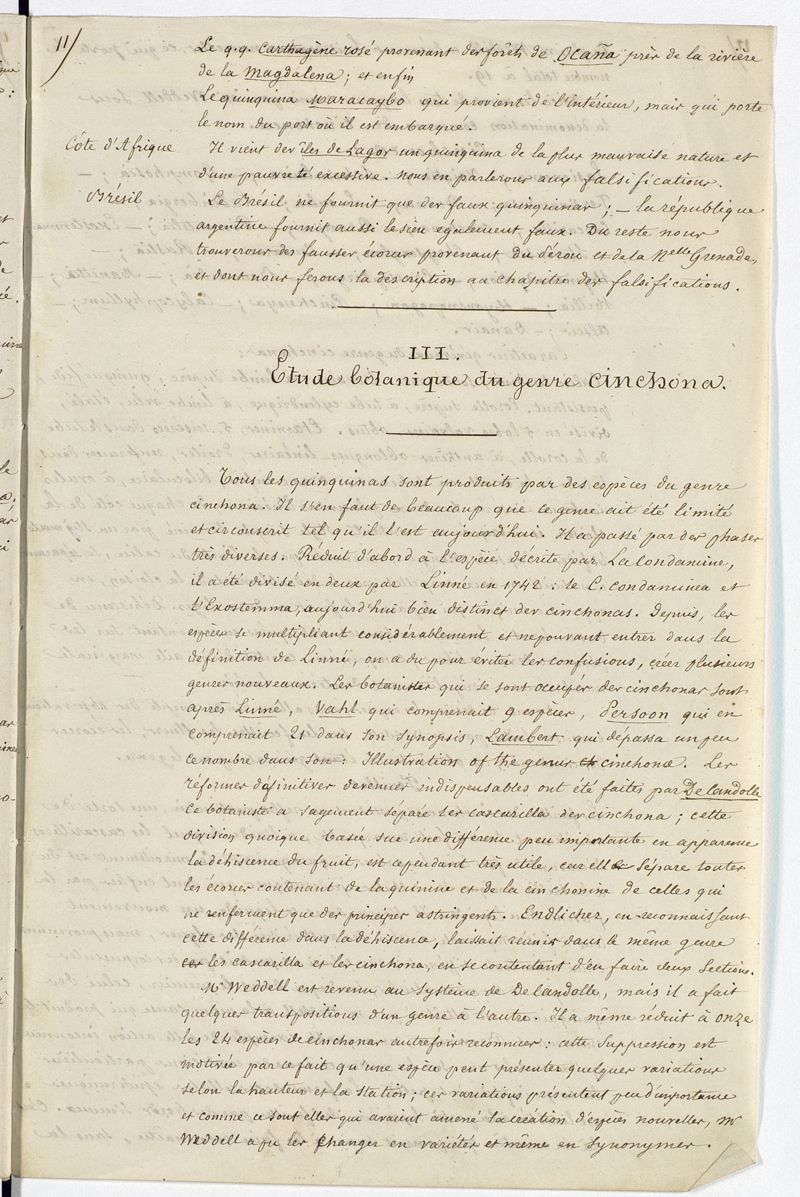 11/
Le q.q. Carthagène rosé provenant des forêts de Ocaña près de la rivière
de la Magdalena ; et enfin
Le quinquina Maracaybo qui provient de l'intérieur, mais qui porte
le nom du port où il est embarqué.
Côte d'Afrique
Il vient des îles de Lagos un quinquina de la plus mauvaise nature et
d'une pauvreté excessive. Nous en parlerons aux falsifications.
Brésil
Le Brésil ne fournit que des faux quinquinas ; – la république
argentine fournit aussi le sien également faux. Du reste nous
trouverons des fausses écorces provenant du Pérou et de la Nelle Grenade,
et dont nous ferons la description au chapitre des falsifications.
III.
Etude botanique du genre cinchona.
Tous les quinquinas sont produits par des espèces du genre
cinchona. Il s'en faut de beaucoup que ce genre ait été limité
et circonscrit tel qu'il l'est aujourd'hui. Il a passé par des phases
très diverses. Réduit d'abord à l'espèce décrite par La Condamine,
il a été divisé en deux par Linné en 1742 : le C. condaminea et
l'Exostemma, aujourd'hui bien distinct des cinchonas. Depuis, les
espèces se multipliant considérablement et ne pouvant entrer dans la
définition de Linné, on a du pour éviter les confusions, créer plusieurs
genres nouveaux. Les botanistes qui se sont occupés des cinchonas sont
après Linné, Vahl qui comprenait 9 espèces, Persoon qui en
comprenait 21 dans son synopsis, Lambert qui dépassa un peu
ce nombre dans son : Illustration of the genus cinchonæ. Les
réformes définitives devenues indispensables ont été faites par De Candolle
Ce botaniste a sagement séparé les cascarilla des cinchona ; cette
division quoique basée sur une différence peu importante en apparence
la déhiscence du fruit, est cependant très utile, car elle sépare toutes
les écorces contenant de la quinine et de la cinchonine de celles qui
ne renferment que des principes astringents. Endlicher, en reconnaissant
cette différence dans la déhiscence, laissait réunis dans le même genre
les cascarilla et les cinchona, en se contentant d'en faire deux Sections.
Mr Weddell est revenu au système de De Candolle, mais il a fait
quelques transpositions d'un genre à l'autre. Il a même réduit à onze
les 24 espèces de cinchonas autrefois reconnues : cette suppression est
motivée par ce fait qu'une espèce peut présenter quelques variations
selon la hauteur et la station ; ces variations présentent peu d'importance
et comme ce sont elles qui avaient amené la création d'espèces nouvelles, Mr
Weddell a pu les changer en variétés et même en synonymes.